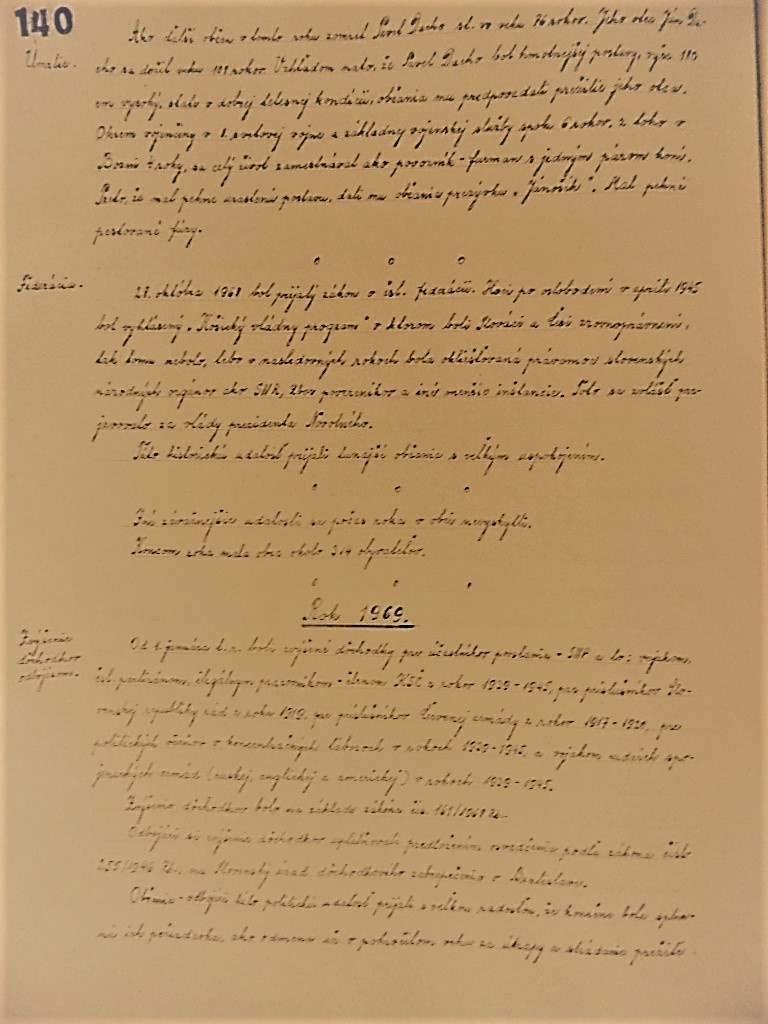 140
Ako ďalší občan v tomto roku zomrel Pavel Dacho st. vo veku 76 rokov. Jeho otec Ján Da-
Úmrtie.
cho sa dožil veku 101 rokov. Vzhľadom na to, že Pavel Dacho bol hmotnejšej postavy, výše 180
cm vysoký, stále v dobrej telesnej kondícii, občania mu predpovedali prežitie jeho otca.
Okrem vojenčiny v 1. svetovej vojne a základnej vojenskej služby spolu 6 rokov, z toho v
Bosni 4 roky, sa celý život zamestnával ako povozník - furman s jedným párom koní.
Preto, že mal pekne urastenú postavu, dali mu občania prezývku „Jánošík". Mal pekné
pestované fúzy.
Federácia.
28. októbra 1968 bol prijatý zákon o čsl. federácii. Hoci po oslobodení v apríli 1945
bol vyhlásený „Košický vládny program" v ktorom boli Slováci a Česi zrovnoprávnení,
tak tomu nebolo, lebo v nasledovných rokoch bola oklieštovaná právomoc slovenských
národných orgánov ako SNR, Zbor povereníkov a iné menšie inštancie. Toto sa zvlášť pre-
javovalo za vlády prezidenta Novotného.
Túto historickú udalosť prijali tunajší občania s veľkým uspokojením.
Iné závažnejšie udalosti sa počas roka v obci nevyskytli.
Koncom roka mala obec okolo 314 obyvateľov.
Rok 1969.
Zvýšenie
dôchodkov
odbojárom.
Od 1. januára t.r. boli zvýšené dôchodky pre účastníkov povstania - SNP a to: vojakom,
čsl. partizánom, ilegálnym pracovníkom - členom KSČ z rokov 1939-1945, pre príslušníkov Slo-
venskej republiky rád z roku 1919, pre príslušníkov Červenej armády z rokov 1917-1920, pre
politických väzňov v koncentračných táboroch v rokoch 1939-1945, a vojakom, našich spo-
jeneckých armád (ruskej, anglickej a americkej) v rokoch 1939-1945.
Zvýšenie dôchodkov bolo na základe zákona čís. 161/1968 Zb.
Odbojári si zvýšenie dôchodkov uplatňovali predložením osvedčenia podľa zákona číslo
255/1946 Zb., na Slovenský úrad dôchodkového zabezpečenia v Bratislave.
Občania - odbojári túto politickú udalosť prijali s veľkou radosťou, že konečne bola splne-
ná ich požiadavka, ako odmena už v pokročilom veku za útrapy a strádania prežité